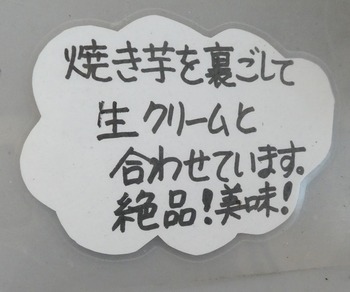 焼き芋を裏ごして
生クリームと
合わせています。
絶品!美味!